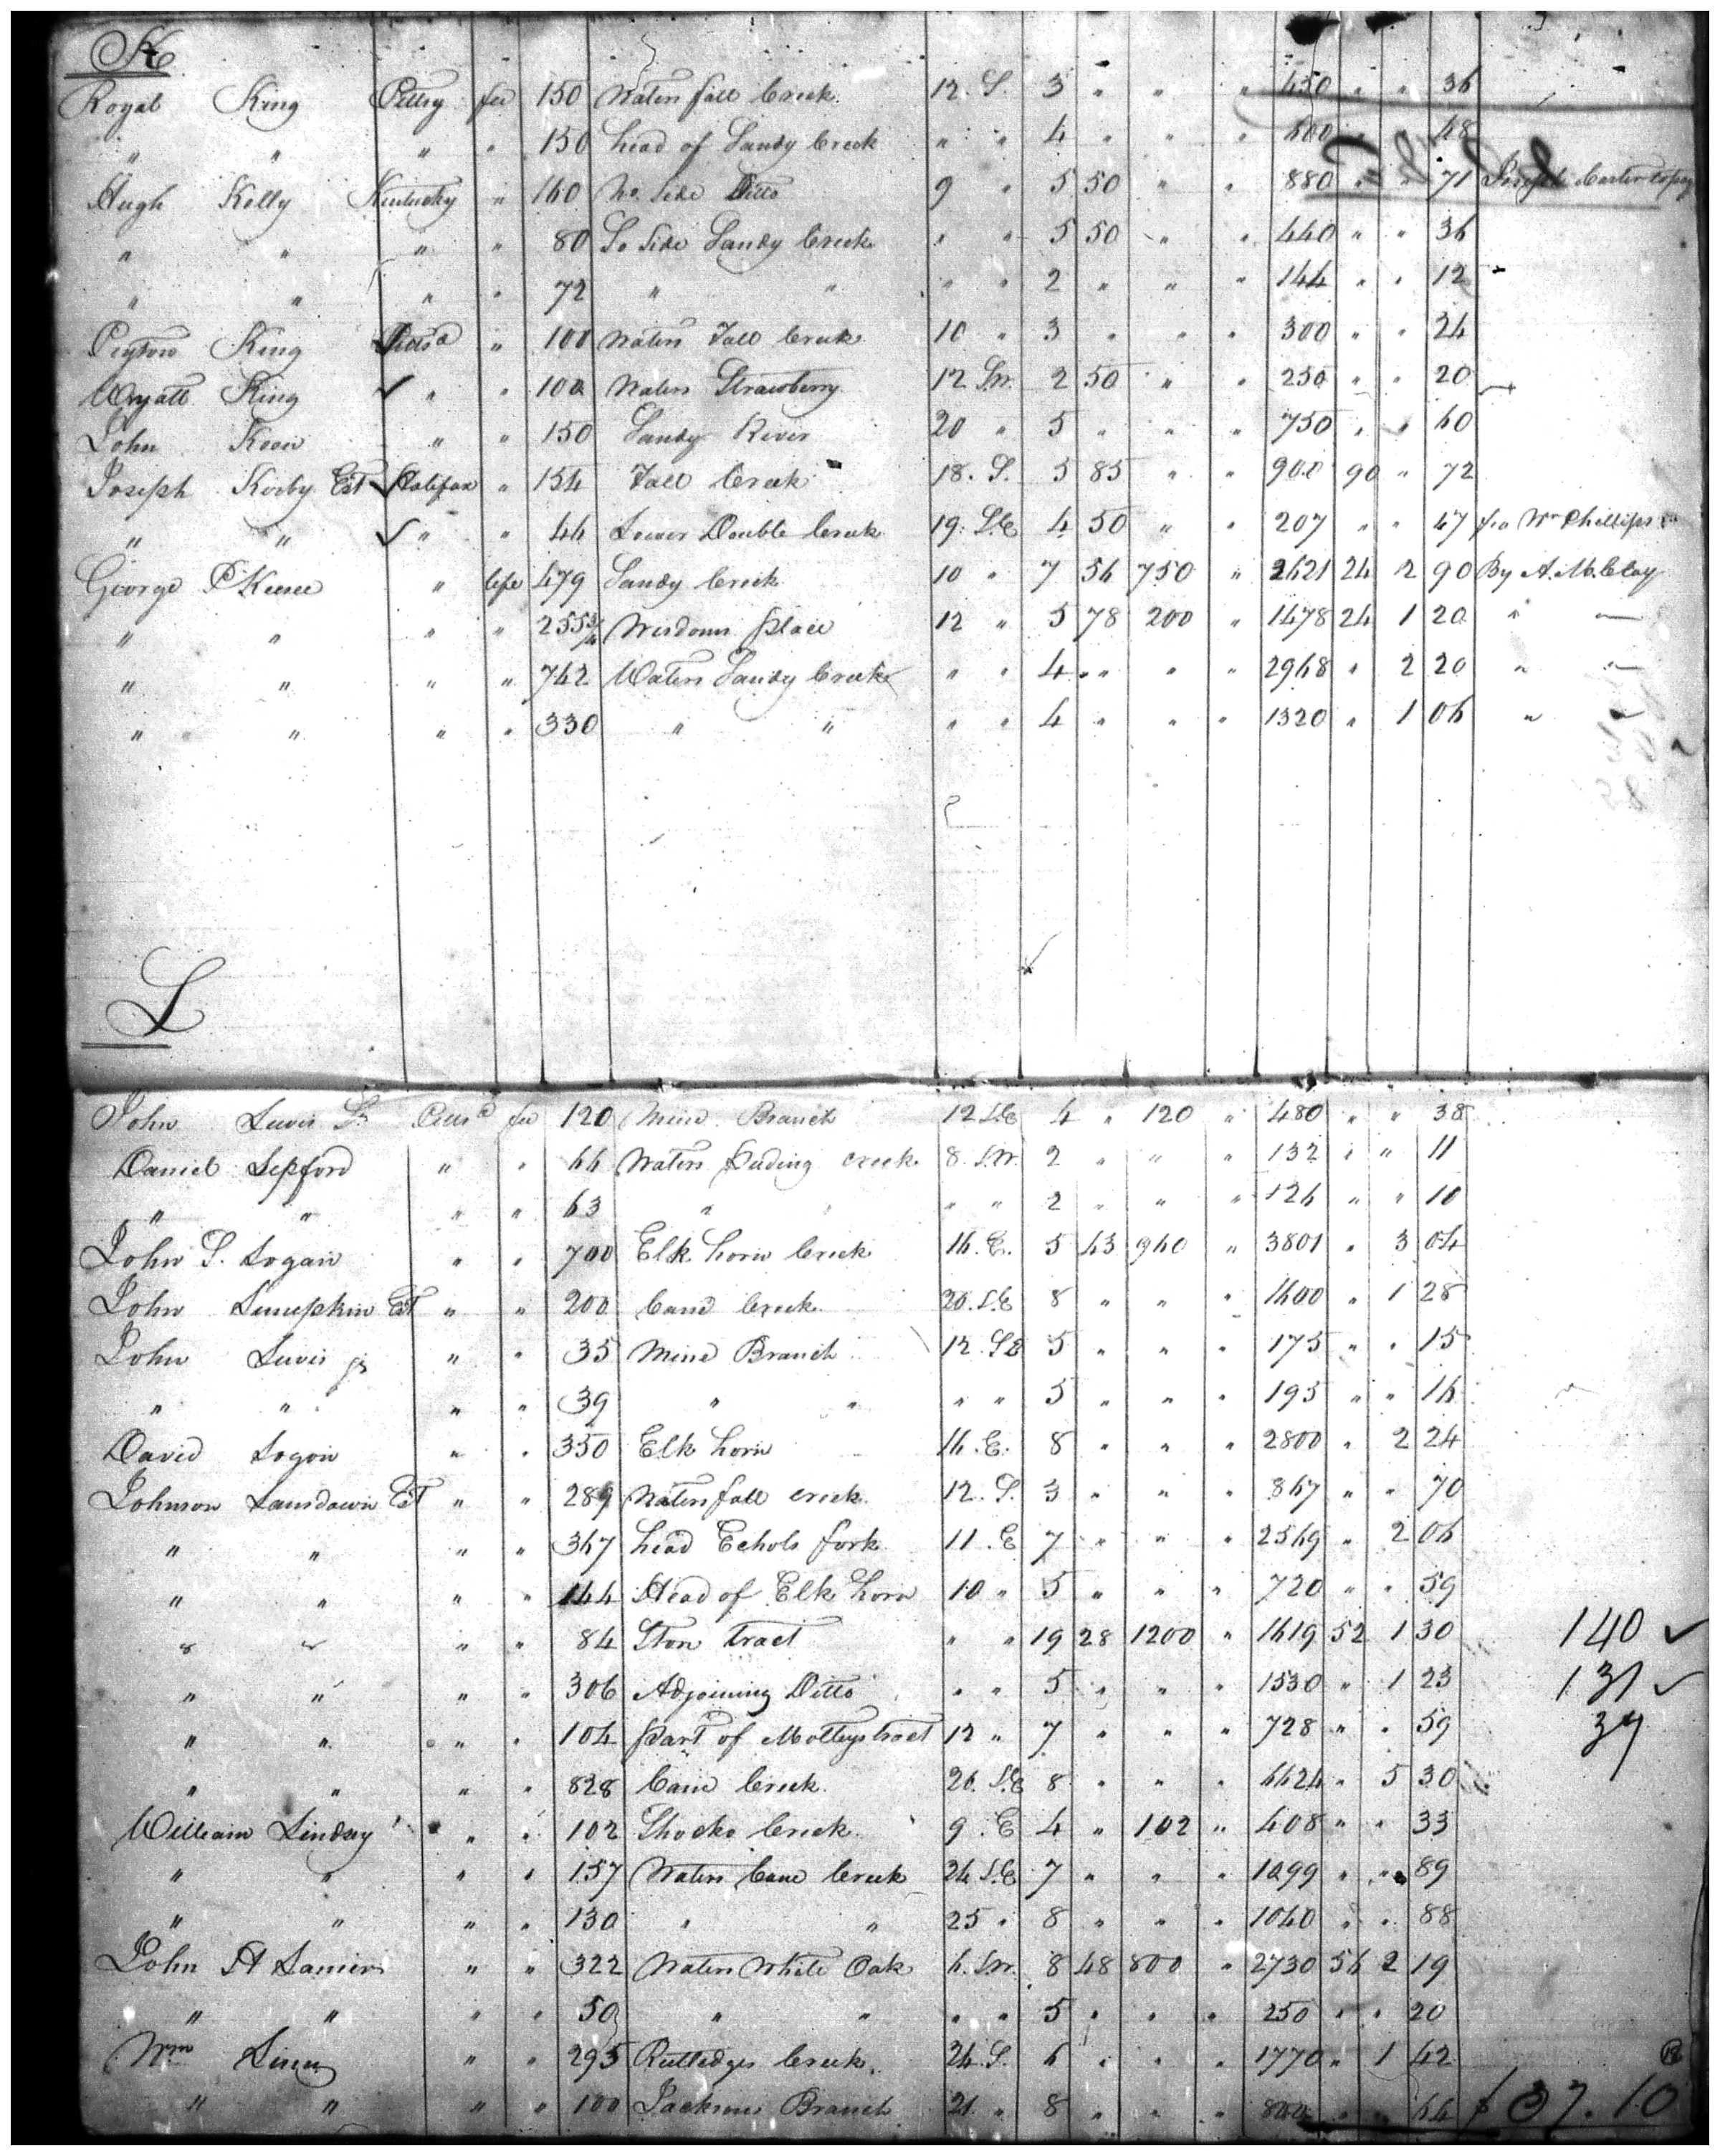 K
Royal King Pittsy fee 150 Waters fall Creek 12. S. 3 " " " 450 " " 36
" " " " 150 head of Sandy Creek " " 4 " " " 600 " " 48
Hugh Kelly Kentucky " 160 No. Side Ditto 9 " 5 50 " " 880 " " 71 Joseph Carter
" " " " 80 So Side Sandy Creek " " 5 50 " " 440 " " 36
" " " " 72 " " " " 2 " " " 144 " " 12
Peyton King Pittsa " 100 Waters Fall Creek 10 " 3 " " " 300 " " 24
Wyatt King " " 100 Waters Strawberry 12 S.W. 2 50 " " 250 " " 20
John Keen " " 150 Sandy River 20 " 5 " " " 750 " " 60
Joseph Kirby Est Halifax " 154 Fall Creek 18. S. 5 85 " " 900 90 " 72
" " " " 46 Lower Double Creek 19. S.E 4 50 " " 207 " " 47 Wm Phillips
George P Keesee " life 479 Sandy Creek 10 " 7 56 750 " 2621 24 2 90 By A. McClay
" " " " 255 3/4 Wisdoms place 12 " 5 78 200 " 1478 24 1 20 "
" " " " 742 Waters Sandy Creek " " 4 " " " 2968 " 2 20 "
" " " " 330 " " " " 4 " " " 1320 " 1 06 "
L
John Lewis Sr Pittsa fee 120 Mine Branch 12 S.E 4 " 120 " 480 " " 38
Daniel Lepford " " 66 Waters Puding creek 8. S.W. 2 " " " 132 " " 11
" " " " 63 " " " " 2 " " " 126 " " 10
John S. Logan " " 700 Elk horn Creek 16. E. 5 43 960 " 3801 " 3 04
John Lumpkin Est " " 200 Cane Creek 20. S.E 8 " " " 1600 " 1 28
John Lewis jr " " 35 Mine Branch 12. SE 5 " " " 175 " " 15
" " " " 39 " " " " 5 " " " 195 " " 16
David Logan " " 350 Elk horn 16. E. 8 " " " 2800 " 2 24
Johnson Lansdown Est " " 289 Waters fall creek 12. S. 3 " " " 867 " " 70
" " " " 367 head Echols fork 11. E 7 " " " 2569 " 2 06
" " " " 144 Head of Elk horn 10 " 5 " " " 720 " " 59
" " " " 84 Ston tract " " 19 28 1200 " 1619 52 1 30 140
" " " " 306 Adjoining Ditto " " 5 " " " 1530 " 1 23 131
" " " " 104 part of Motleys tract 12 " 7 " " " 728 " " 59 37
" " " " 828 Cane Creek 26. S.E 8 " " " 6624 " 5 30
William Lindsey " " 102 Shocko Creek 9. E 4 " 102 " 408 " " 33
" " " " 157 Waters Cane Creek 24 S.E 7 " " " 1099 " " 89
" " " " 130 " " 25 " 8 " " " 1040 " " 88
John H Lanier " " 322 Waters White Oak 6. S.W. 8 48 800 " 2730 56 2 19
" " " " 50 " " " " 5 " " " 250 " " 20
Wm " " 295 Rutledges Creek 24. S. 6 " " " 1770 " 1 42
" " " " 100 Jacksons Branch 21 " 8 " " " 800 " " 64 $37.10